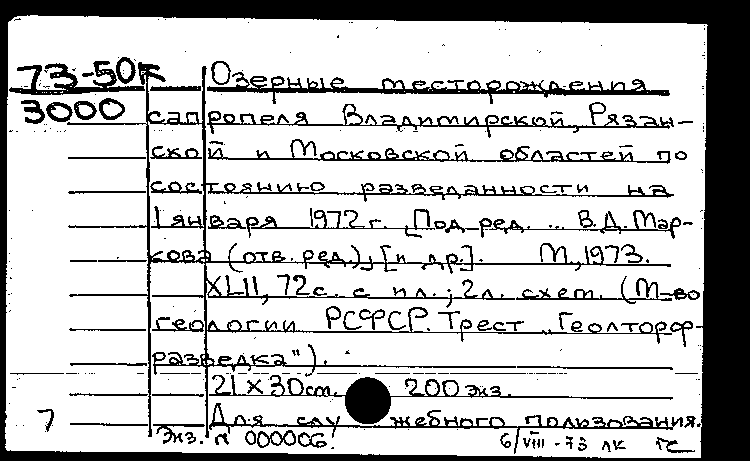 73-50К Озерные месторождения
3000 сапропеля Владимирской, Рязан-
ской и Московской областей по
состоянию разведанности на
1 января 1972 г. [Под ред. ... В.Д. Мар-
кова (отв. ред.)], [и др.]. М., 1973.
XLII, 72 с. с ил.; 2 л. схем. (М-во
геологии РСФСР. Трест „Геолторф-
разведка").
21 x 30 cm. 200 экз.
7 Для служебного пользования.
Экз. № 000006. 6/VIII-73 ЛК